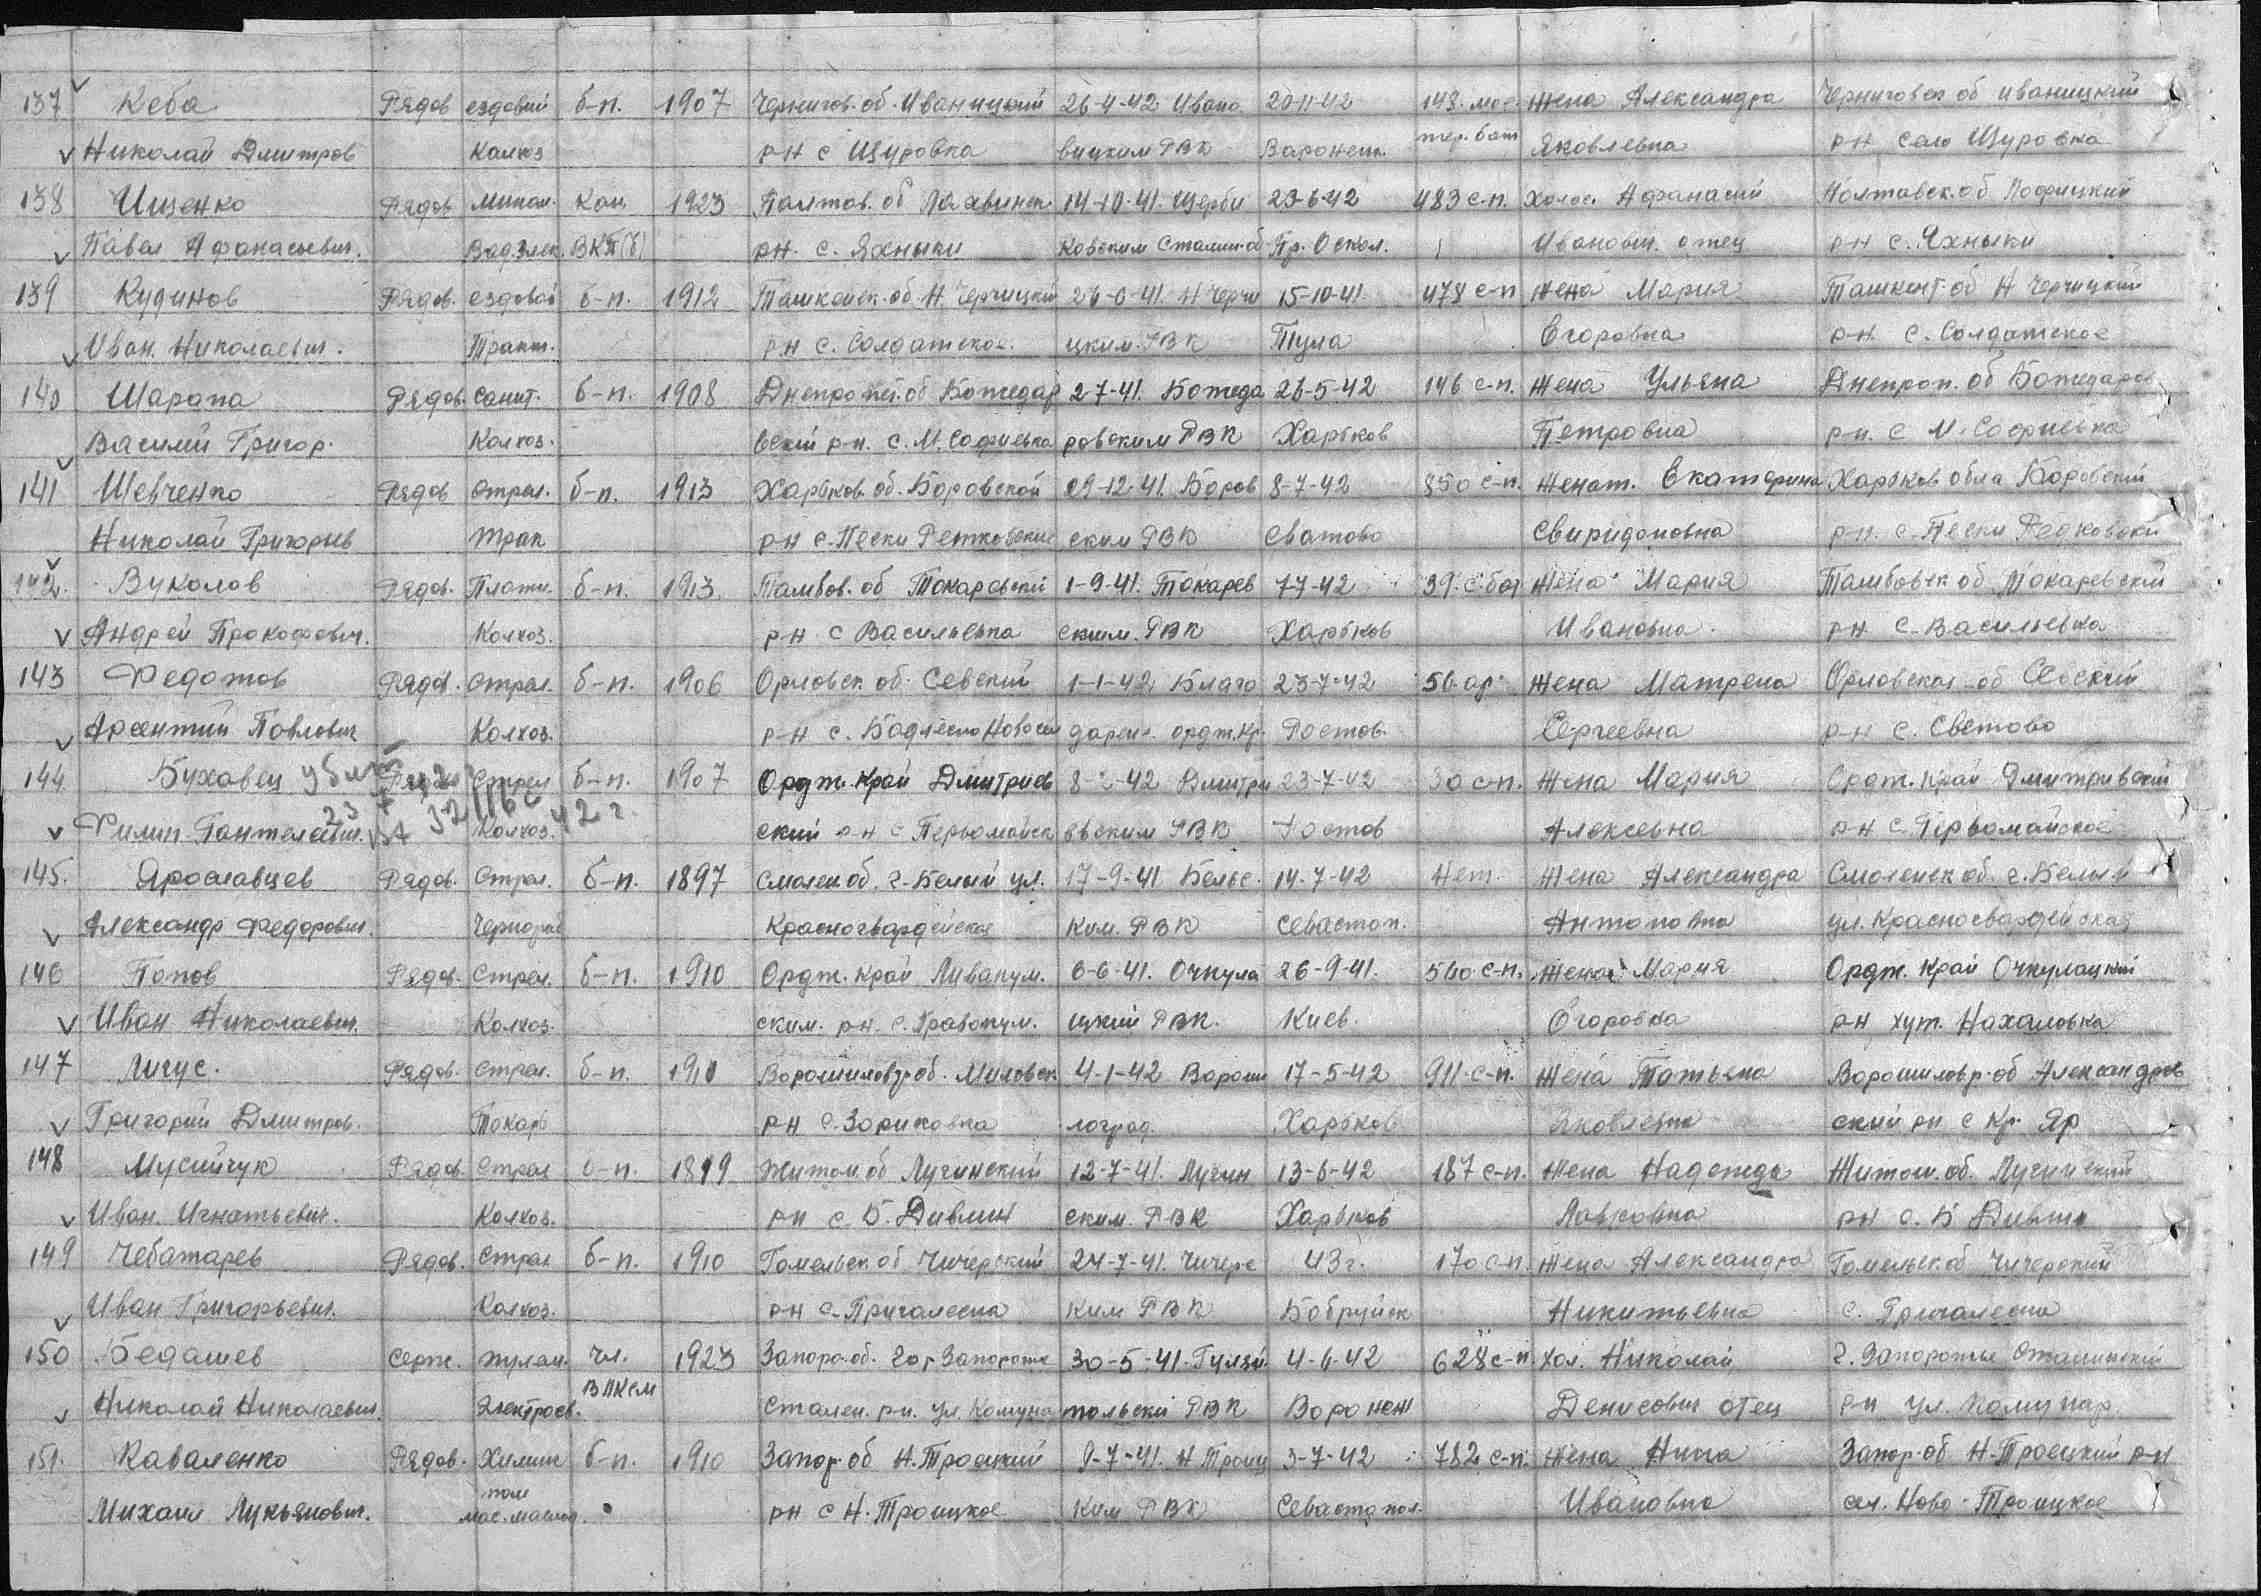 137 Кеба Рядов ездовой б-п. 1907 Чернигов. об. Иваницкий 26-4-42 Ивано 20-11-42 143. мос. жена Александра Черниговск об иваницкий
Николай Дмитров Колхоз рн с Щуровка вицким РВК Воронеж. тер. бат Яковлевна рн село Щуровка
138 Ищенко Рядов Мином. Кан 1923 Полтов. об Лохвинск 14-10-41. Щерби 23-6-42 483 с-п. Холос Афанасий Полтавск. об
Павел Афанасьевич. ВКП(б) рн. с. Яхныки ковским Сталин. об Пр. Оскол. Иванович. отец рн с. Яхныки
139 Кудинов Рядов. ездовой б-п. 1912 Ташкенск. об. Н. Чирчицкий 26-6-41. Н Чирчи 15-10-41. 478 с-п жена Мария Ташкент. об Н Чирчицкий
Иван. Николаевич. Тракт. рн с. Солдатское. цким. РВК Тула Егоровна рн. с. Солдатское
140 Шарапа Рядов. Санит. б-п. 1908 Днепропет. об Божедар 2-7-41. Божеда 26-5-42 146 с-п. жена Ульяна Днепроп. об Божедаров
Василий Григор. Колхоз. вский рн. с. М. Софиевка ровским РВК Харьков Петровна р-н. с М. Софиевка
141 Шевченко Рядов Стрел. б-п. 1913 Харьков. об. Боровской 29-12-41. Боров 8-7-42 850 с-п. женат. Екатерина Харьков обла Боровский
Николай Григорьев трак рн с. Пески Ретковские ским РВК Сватово Свиридоновна р-н. с. Пески
142. Вуколов Рядов. Плотн. б-п. 1913. Тамбов. об Токаревский 1-9-41. Токарев 7-7-42 39. с. бат жена Мария Тамбовск об. Токаревский
Андрей Прокофович. Колхоз. рн с Васильевка ским. РВК Харьков Ивановна. рн с. Васильевка
143 Федотов Рядов. Стрел. б-п. 1906 Орловск. об. Севский 1-1-42 Благо 23-7-42 56. ар. жена Матрена Орловская об Севский
Арсентий Павлович Колхоз. р-н с. Новосел дарен. ордж. кр. Ростов. Сергеевна рн с. Светово
144 Буховец убит Рядов Стрел б-п. 1907 Ордж. Край Дмитриев 8-2-42 Дмитри 23-7-42 30 с-п. жена Мария Ордж. Край Дмитривский
Филип Пантелевич. Колхоз. 42 г. ский р-н с Первомайск евским РВК Ростов Алексевна рн с. Первомайское
145. Ярославцев Рядов. Стрел. б-п. 1897 Смолен об. г. Белый ул. 17-9-41 Бельс. 14-7-42 Нет. жена Александра Смоленск об. г. Белый
Александр Федорович. Чернораб Красногвардейское Ким. РВК Севастоп. Антоновна ул. Красногвардейская
146 Попов Рядов. Стрел. б-п. 1910 Ордж. Край Ливакум. 6-6-41. Очкула 26-9-41. 560 с-п. жена Мария Ордж. Край Очкулацкий
Иван Николаевич. Колхоз. ским. рн. с. Правокум. цкий РВК. Киев. Егоровна рн хут. Нахаловка
147 Личус. Рядов. Стрел. б-п. 1910 Ворошиловгр. об. Миловск. 4-1-42 Вороши 17-5-42 911 с-п. жена Татьяна Ворошиловгр. об Александров
Григорий Дмитров. Токарь рн с. Зориковка лоград. Харьков Яковлевна ский рн с Кр. Яр
148 Мусийчук Рядов. Стрел б-п. 1899 Житом. об Лугинский 12-7-41. Лугин 13-6-42 187 с-п. жена Надежда Житом. об. Лугинский
Иван. Игнатьевич. Колхоз. рн с. Б. Дивлин ским. РВК Харьков Лавровна рн с. Б Дивлин
149 Чебатарев Рядов. Стрел б-п. 1910 Гомельск. об Чичерский 24-7-41. Чичерс 43 г. 170 с-п. жена Александра Гомельск. об Чичерский
Иван Григорьевич. Колхоз. рн с. Пригалесна ким РВК Бобруйск Никитьевна с.
150 Бедашев Серж. пулем. чл. 1923 Запоро. об. гор. Запорожье 30-5-41. Гуляй 4-6-42 628 с-п хол. Николай г. Запорожье Сталинский
Николай Николаевич. Электросв. ВЛКСМ Сталин. рн. ул. Комуна польский РВК Воронеж Денисович отец рн ул. Комунар.
151. Каваленко Рядов. Химик б-п. 1910 Запор. об Н. Троецкий 9-7-41. Н Троиц 3-7-42 782 с-п. жена Нина Запор. об Н. Троецкий р-н
Михаил Лукьянович. рн с Н. Троицкое ким РВК Севастопол. Ивановна сел. Ново-Троицкое